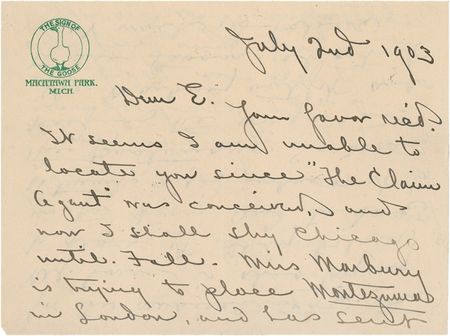 THE SIGN OF
THE GOOSE
MACATAWA PARK.
MICH.
July 2nd 1903
Dear E. Your favor rec'd.
It seems I am unable to
locate you since "The Claim
Agent" was conceived, and
now I shall shy Chicago
until Fall. Miss Marbury
is trying to place Montezuma
in London, and has sent